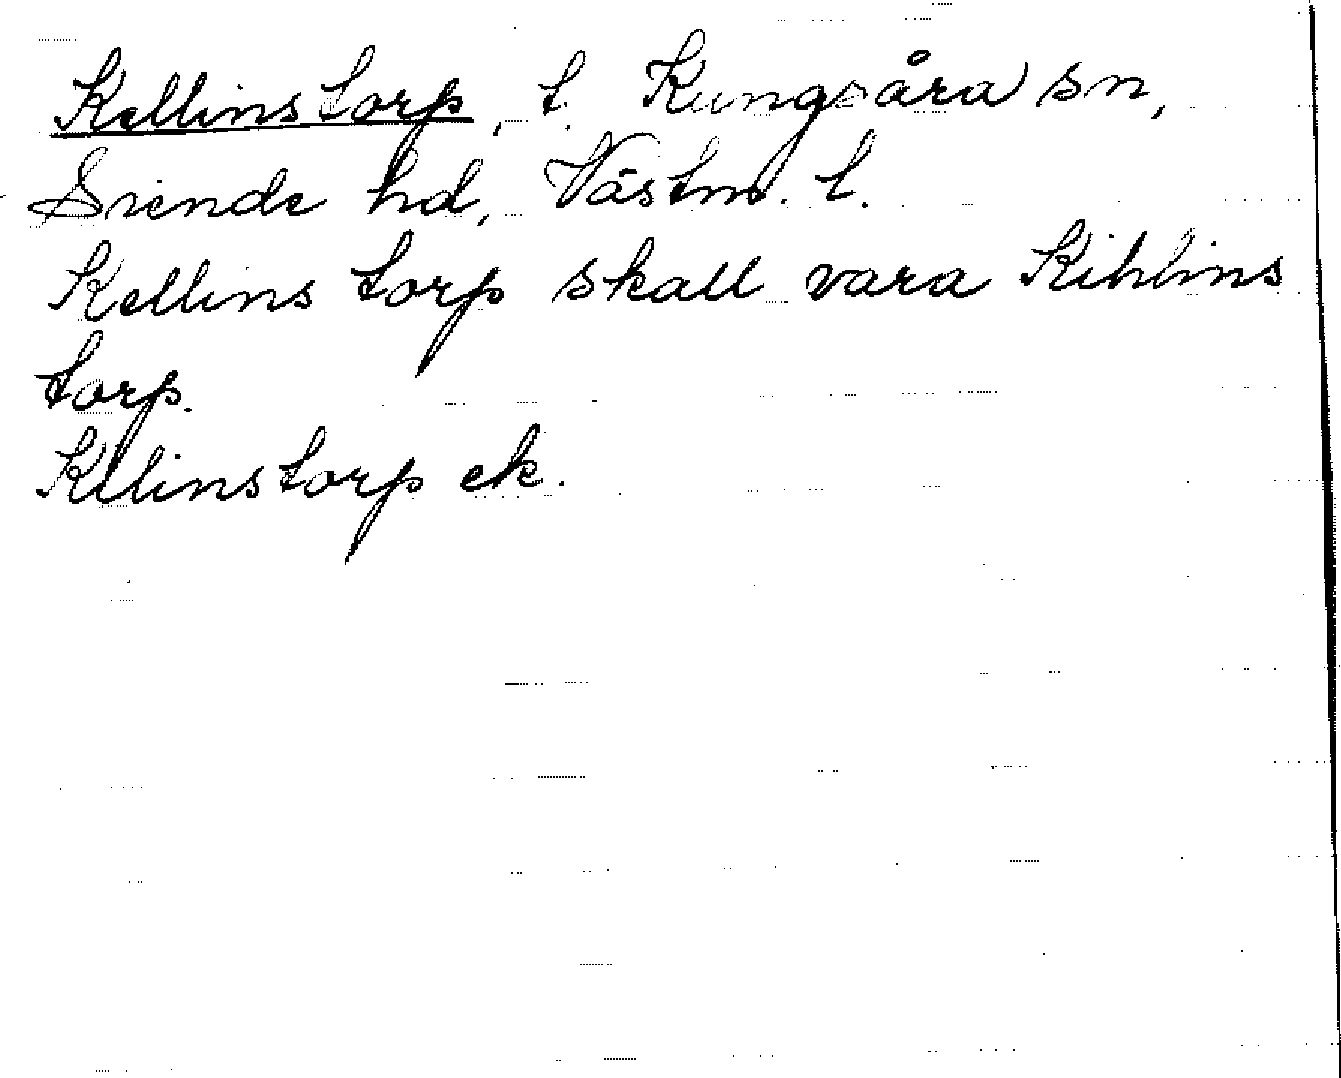 Kellinstorp, t. Kungsåra sn,
Siende hd, Västm. l.
Kellins torp skall vara Kihlins
torp.
Kelinstorp ek.